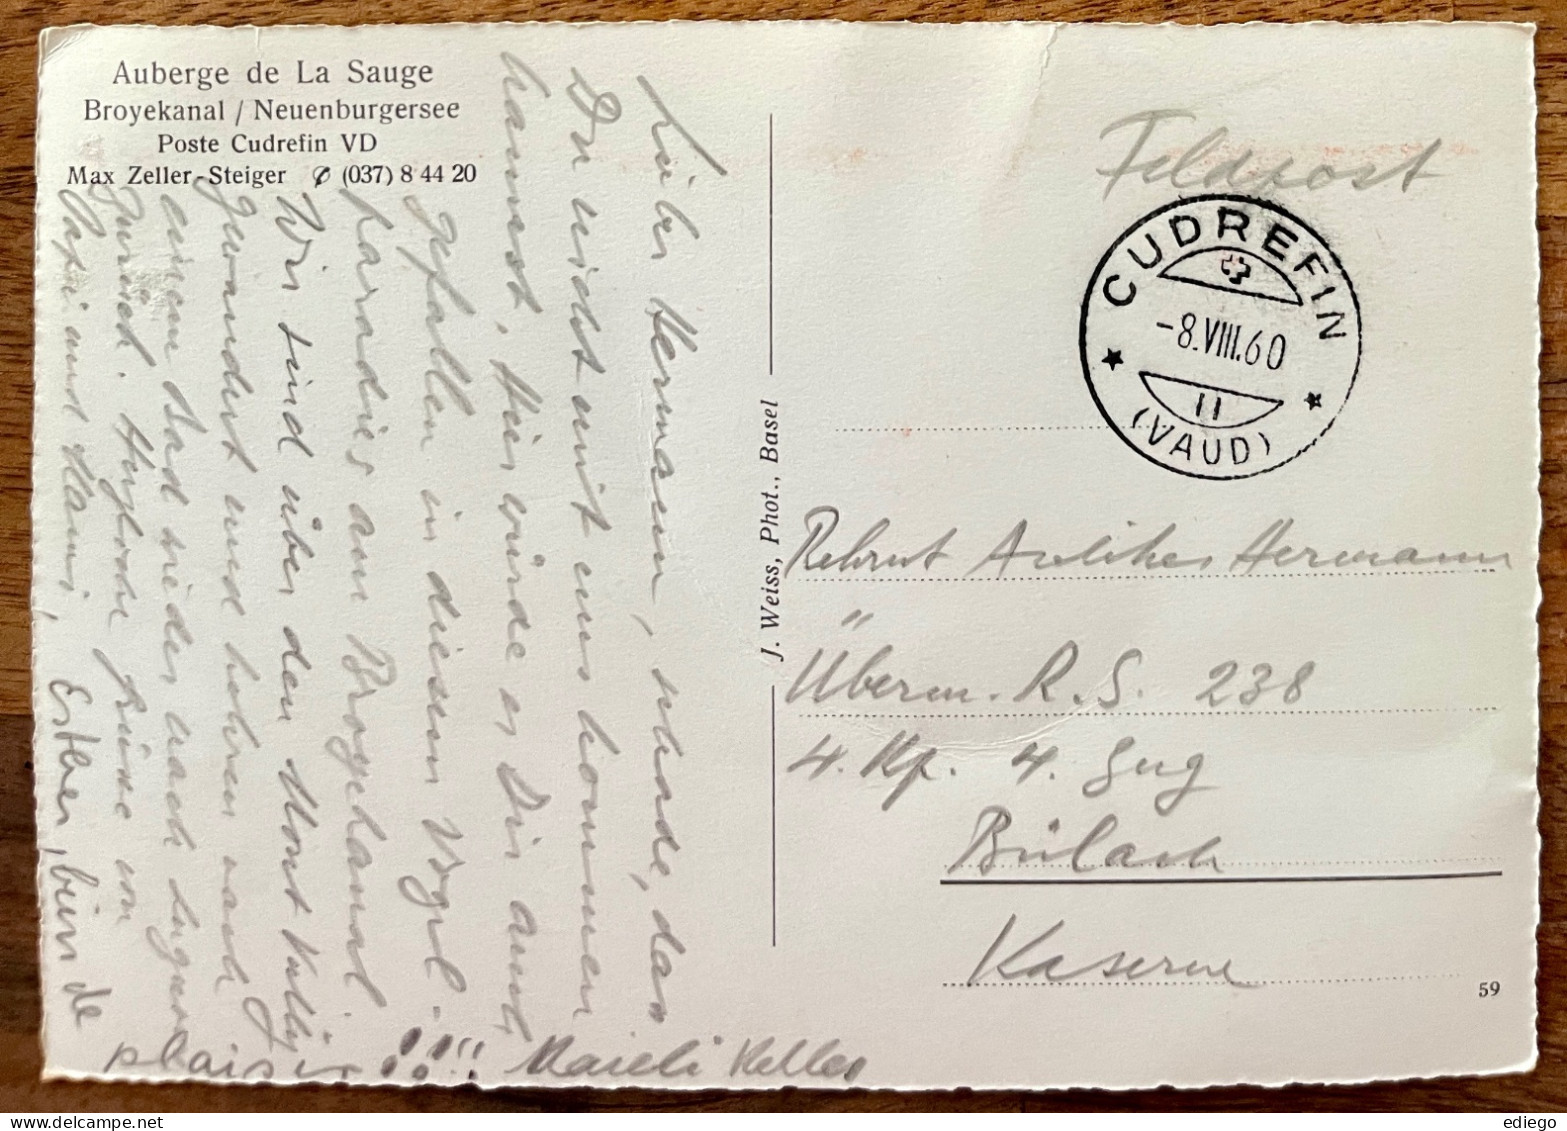 Auberge de La Sauge
Broyekanal / Neuenburgersee
Poste Cudrefin VD
Max Zeller-Steiger ✆ (037) 8 44 20
Lieber Hermann, schade, dass
Du nicht mit uns kommen
kannst, hier würde es Dir auch
gefallen in diesem Vogel-
paradies am Broyekanal.
Wir sind über den Mont Vully
gewandert und kehren nach
einem Bad wieder nach Lugnorre
zurück. Herzliche Grüsse von
Papi und Mami,
Esther,
plaisir !!!! Kaneli Keller
J. Weiss, Phot., Basel
Feldpost
CUDREFIN
-8.VIII.60
11
(VAUD)
Rekrut Hermann
Überm. R.S. 238
4. Kp. 4. Zug
Bülach
Kaserne
59
ediego